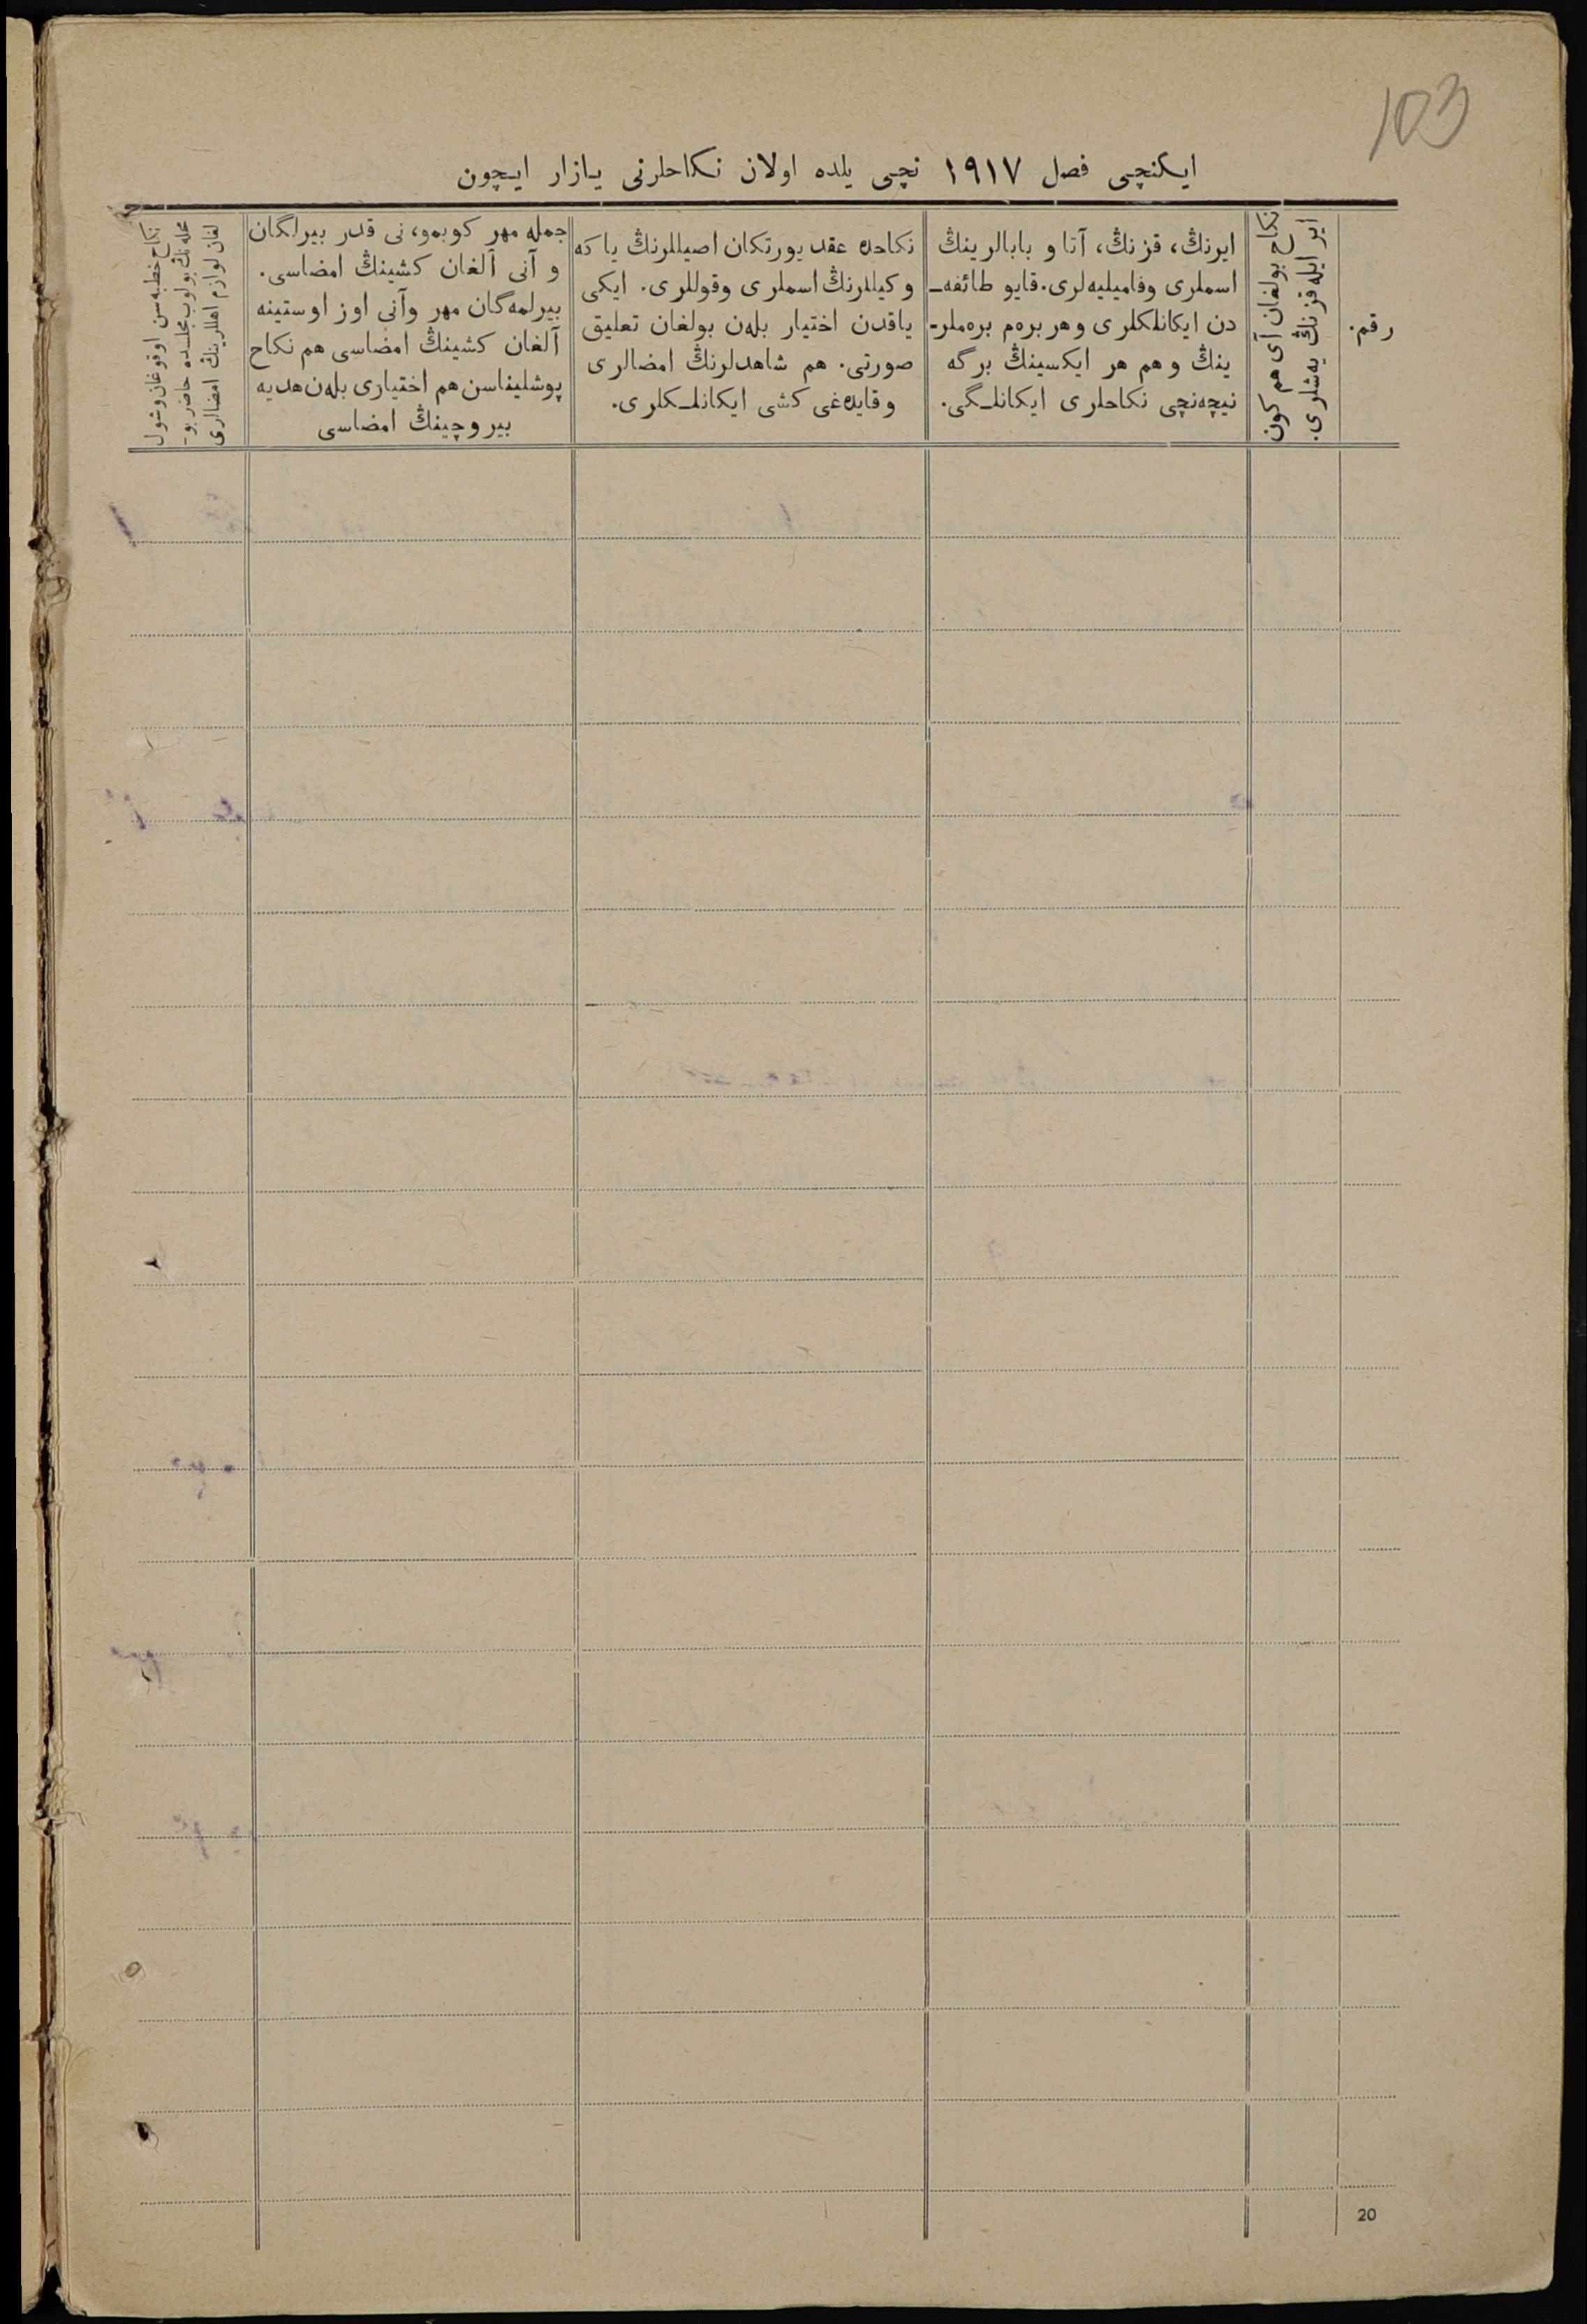 103
ایکنچی فصل ۱۹۱۷ نچی یلده اولان نکاحلرنی یازار ایچون
رقم.
ایر ایله قزنڭ یه‌شلری.
نکاح بولغان آی هم کون
ایرنڭ، قزنڭ، آتا و بابالرینڭ
اسملری وفامیلیه‌لری. قایو طائفه‌ـ
دن ایکانلکلری و هر بره‌م بره‌ملرـ
ینڭ و هم هر ایکسینڭ برگه
نیچه‌نچی نکاحلری ایکانلـگی.
نکاحده عقد یورتکان اصیللرنڭ یا که
وکیللرنڭ اسملری وقوللری. ایکی
یاقدن اختیار بله‌ن بولغان تعلیق
صورتی. هم شاهدلرنڭ امضالری
وقایده‌غی کشی ایکانلـکلری.
جمله مهر کوبمو، نی قدر بیرلگان
و آنی آلغان کشینڭ امضاسی.
بیرلمه‌گان مهر وآنی اوز اوستینه
آلغان کشینڭ امضاسی هم نکاح
پوشلیناسن هم اختیاری بله‌ن هدیه
بیروچینڭ امضاسی
نکاح خطبه‌سن اوقوغان وشول
محله‌نڭ بولوب مجلـسده حاضر بوـ
لغان لوازم اهللرینڭ امضالری
20